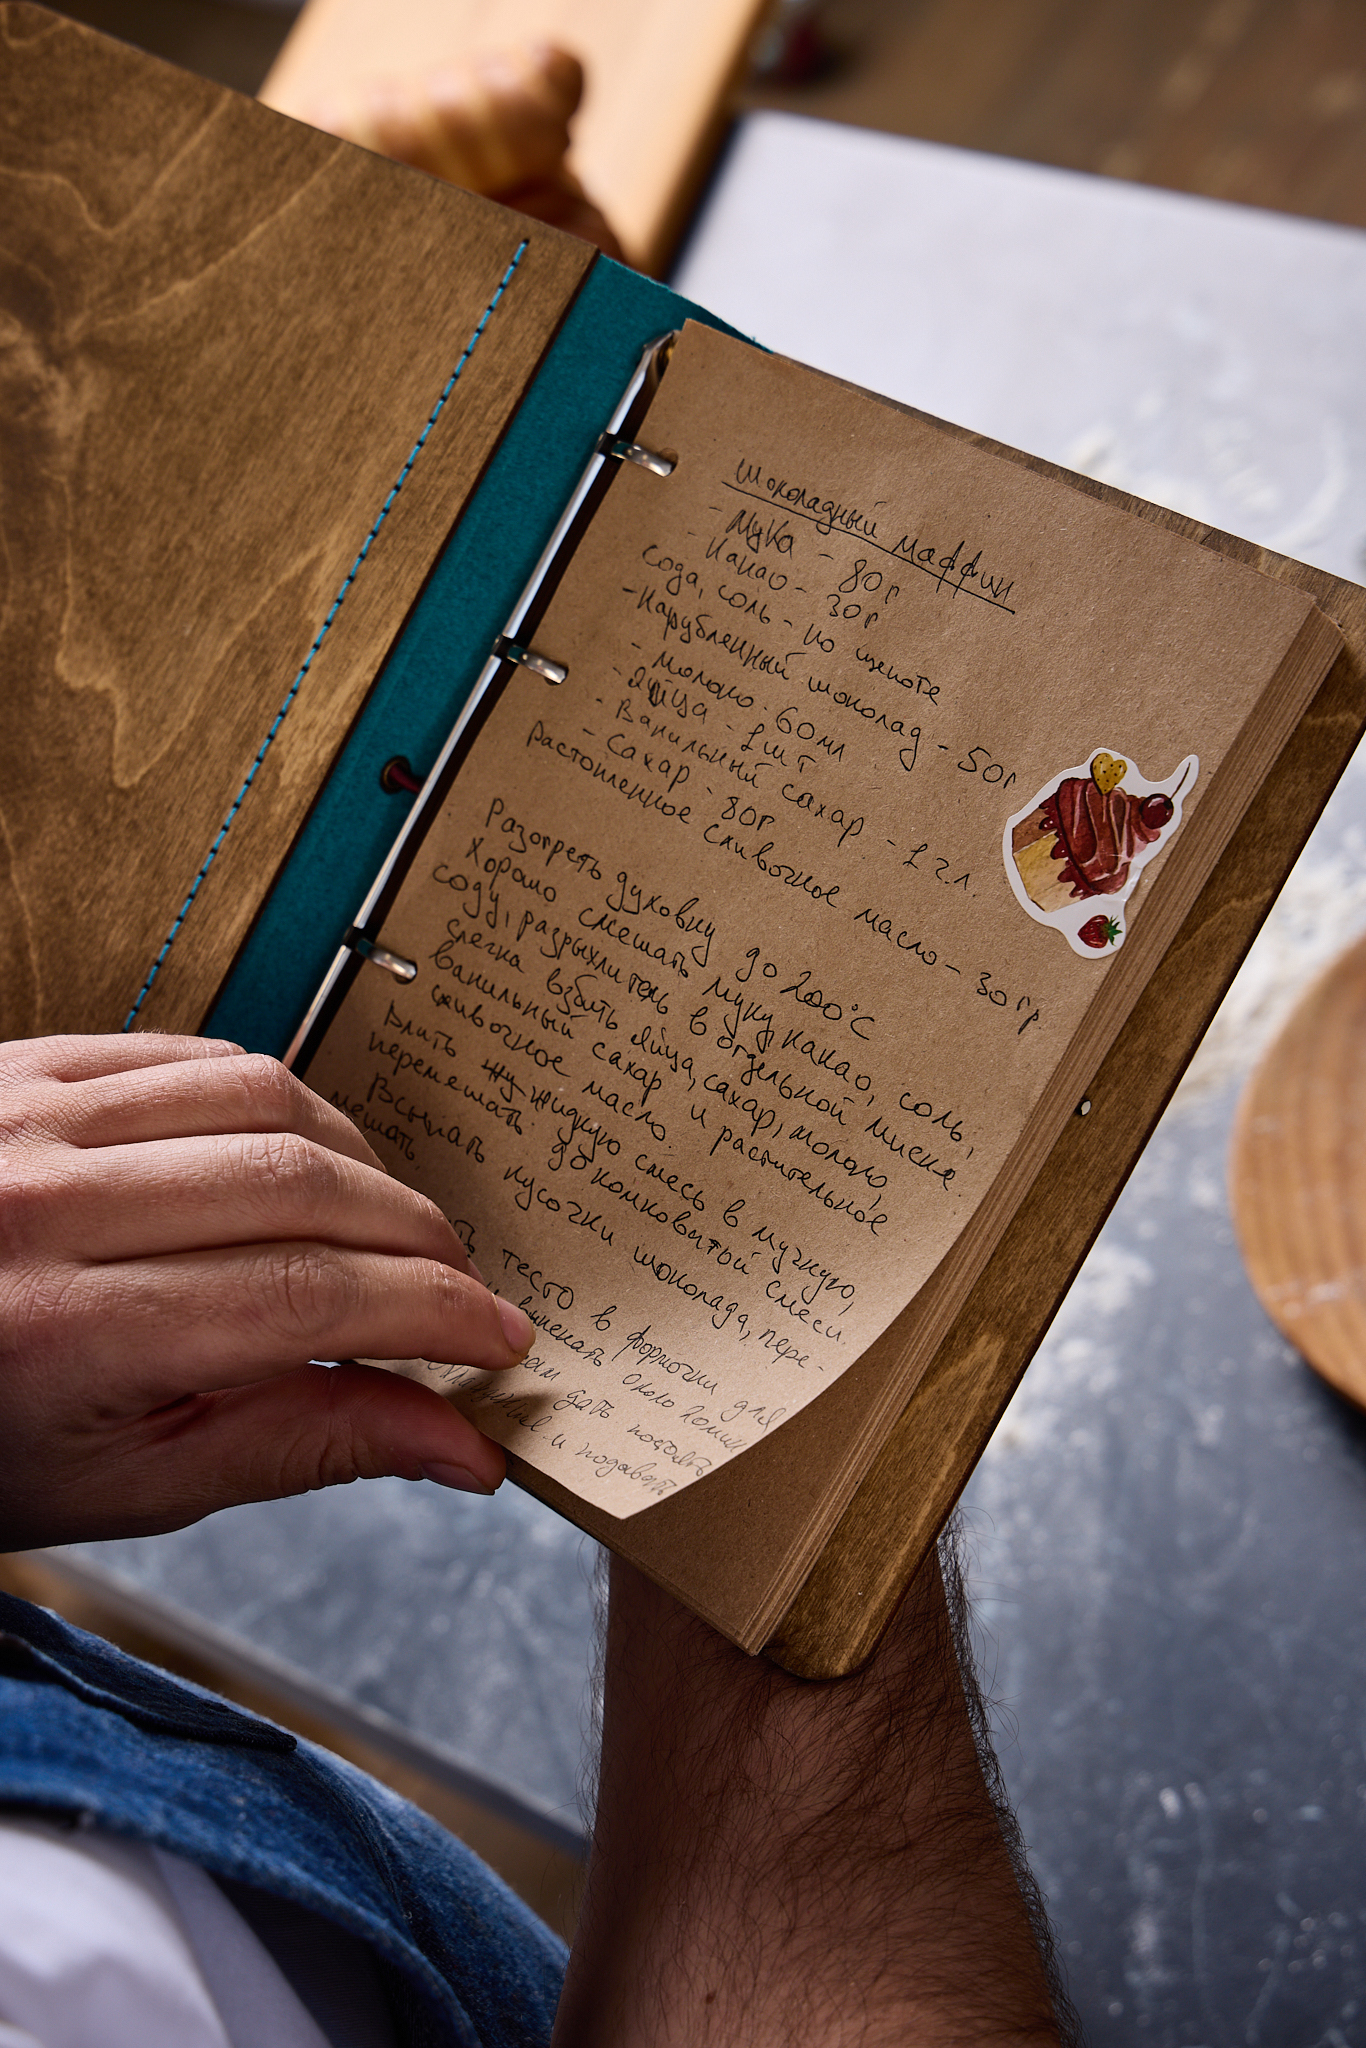 Шоколадный маффин
- Мука - 80 г
- Какао - 30 г
сода, соль - по щепоте
- Нарубленный шоколад - 50 г
- молоко - 60 мл
- яйца - 1 шт
- Ванильный сахар - 1 ч.л.
- Сахар - 80 г
Растопленное сливочное масло - 30 гр
Разогреть духовку до 200°C
Хорошо смешать муку, какао, соль,
соду, разрыхлитель в отдельной миске.
Слегка взбить яйца, сахар, молоко,
ванильный сахар и растительное
сливочное масло.
Влить жидкую смесь в мучную,
перемешать до комковатой смеси.
Всыпать кусочки шоколада, пере-
мешать.
тесто в формочки для
выпекать около 20 мин
дать постоять
и подавать